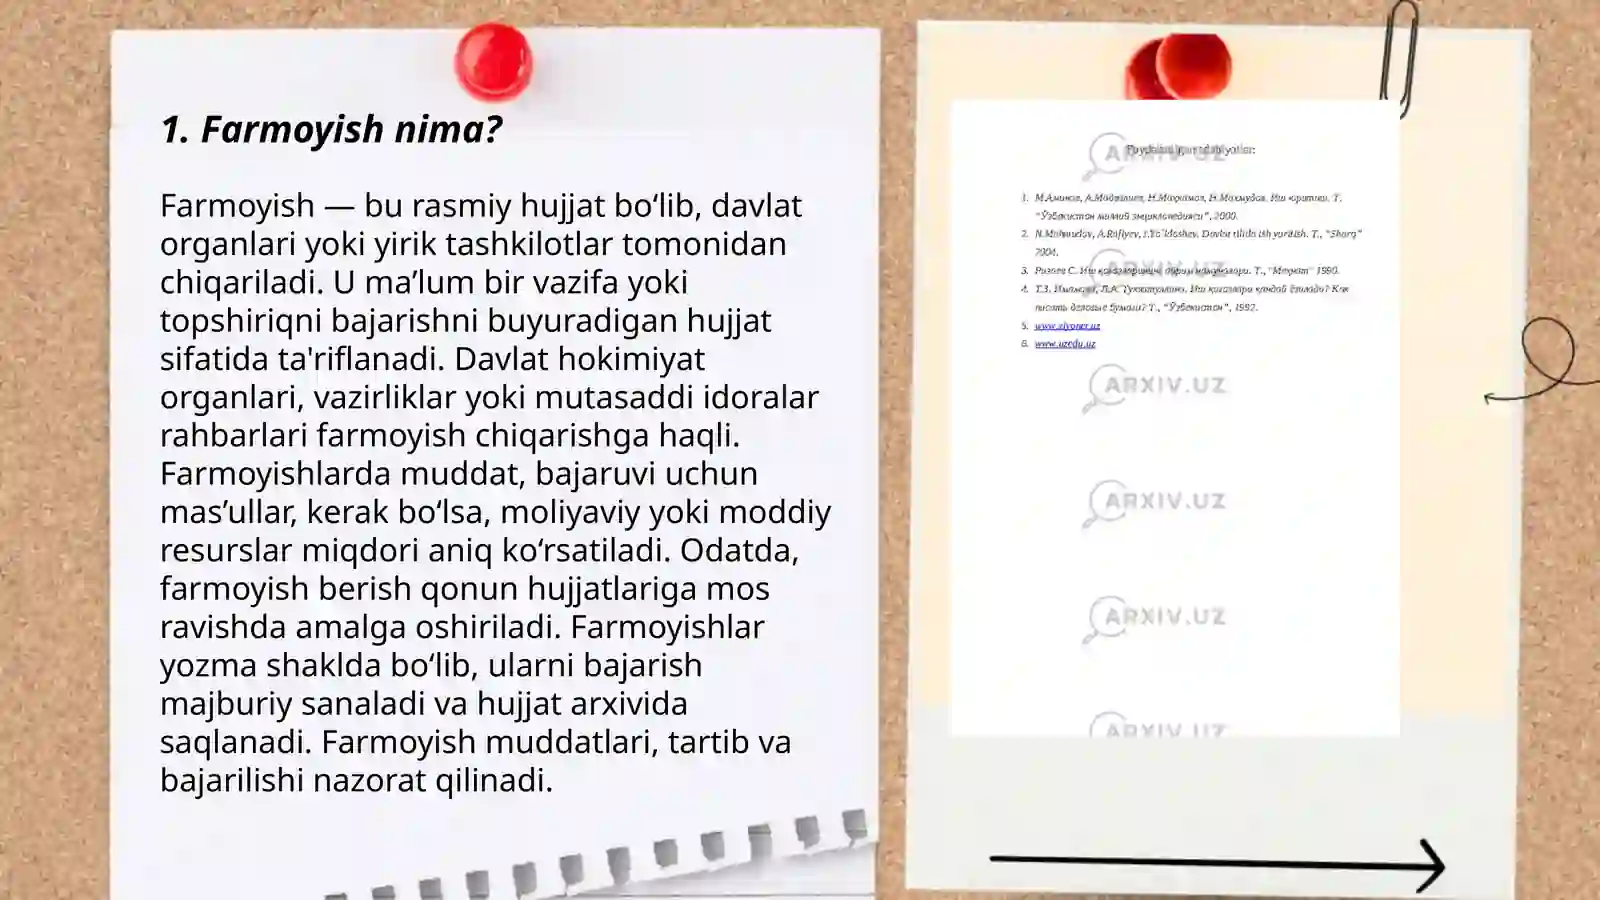 1. Farmoyish nima?
Farmoyish — bu rasmiy hujjat bo‘lib, davlat
organlari yoki yirik tashkilotlar tomonidan
chiqariladi. U ma’lum bir vazifa yoki
topshiriqni bajarishni buyuradigan hujjat
sifatida ta'riflanadi. Davlat hokimiyat
organlari, vazirliklar yoki mutasaddi idoralar
rahbarlari farmoyish chiqarishga haqli.
Farmoyishlarda muddat, bajaruvi uchun
mas’ullar, kerak bo‘lsa, moliyaviy yoki moddiy
resurslar miqdori aniq ko‘rsatiladi. Odatda,
farmoyish berish qonun hujjatlariga mos
ravishda amalga oshiriladi. Farmoyishlar
yozma shaklda bo‘lib, ularni bajarish
majburiy sanaladi va hujjat arxivida
saqlanadi. Farmoyish muddatlari, tartib va
bajarilishi nazorat qilinadi.
ARXIV.UZ
1. М.Аминов, А.Мадвалиев, Н.Маҳкамов, Н.Махмудов. Иш юритиш. Т.
“Ўзбекистон миллий энциклопедияси”, 2000.
2. N.Mahmudov, A.Rafiyev, I.Yo`ldoshev. Davlat tilida ish yuritish. T., “Sharq”
2004.
3. С. Иш қоғозларининг намуналари. Т., “Меҳнат” 1990.
ARXIV.UZ
4. Т.З. Иш қоғозлари қандай ёзилади? Как
писать деловые бумаги? Т., “Ўзбекистон”, 1992.
5. www.ziyonet.uz
6. www.uzedu.uz
ARXIV.UZ
ARXIV.UZ
ARXIV.UZ
ARXIV.UZ